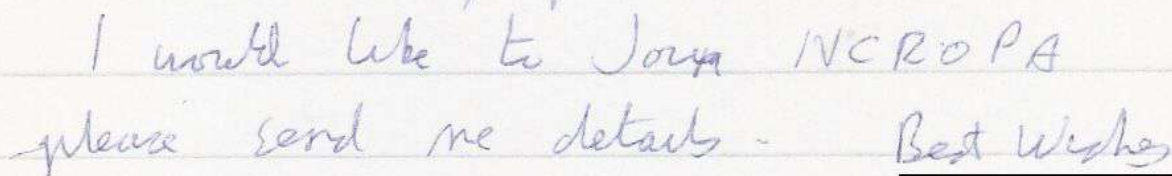 I would like to Join NCROPA
please send me details - Best Wishes